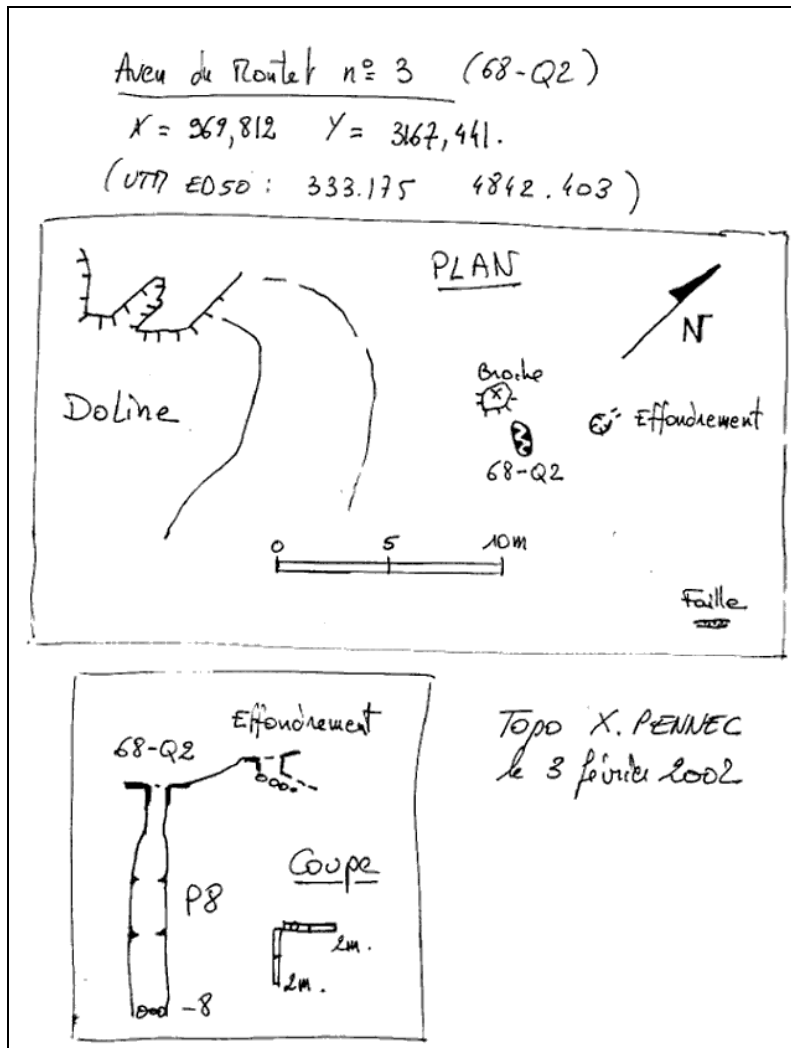 Aven du Montet nº 3 (68-Q2)
X = 969,812 Y = 3167,441.
(UTM ED50 : 333.175 4842.403)
PLAN
N
Broche
Doline
Effondrement
68-Q2
0 5 10m
Faille
Effondrement
68-Q2
Topo X. PENNEC
le 3 février 2002
Coupe
P8
2m.
2m.
-8